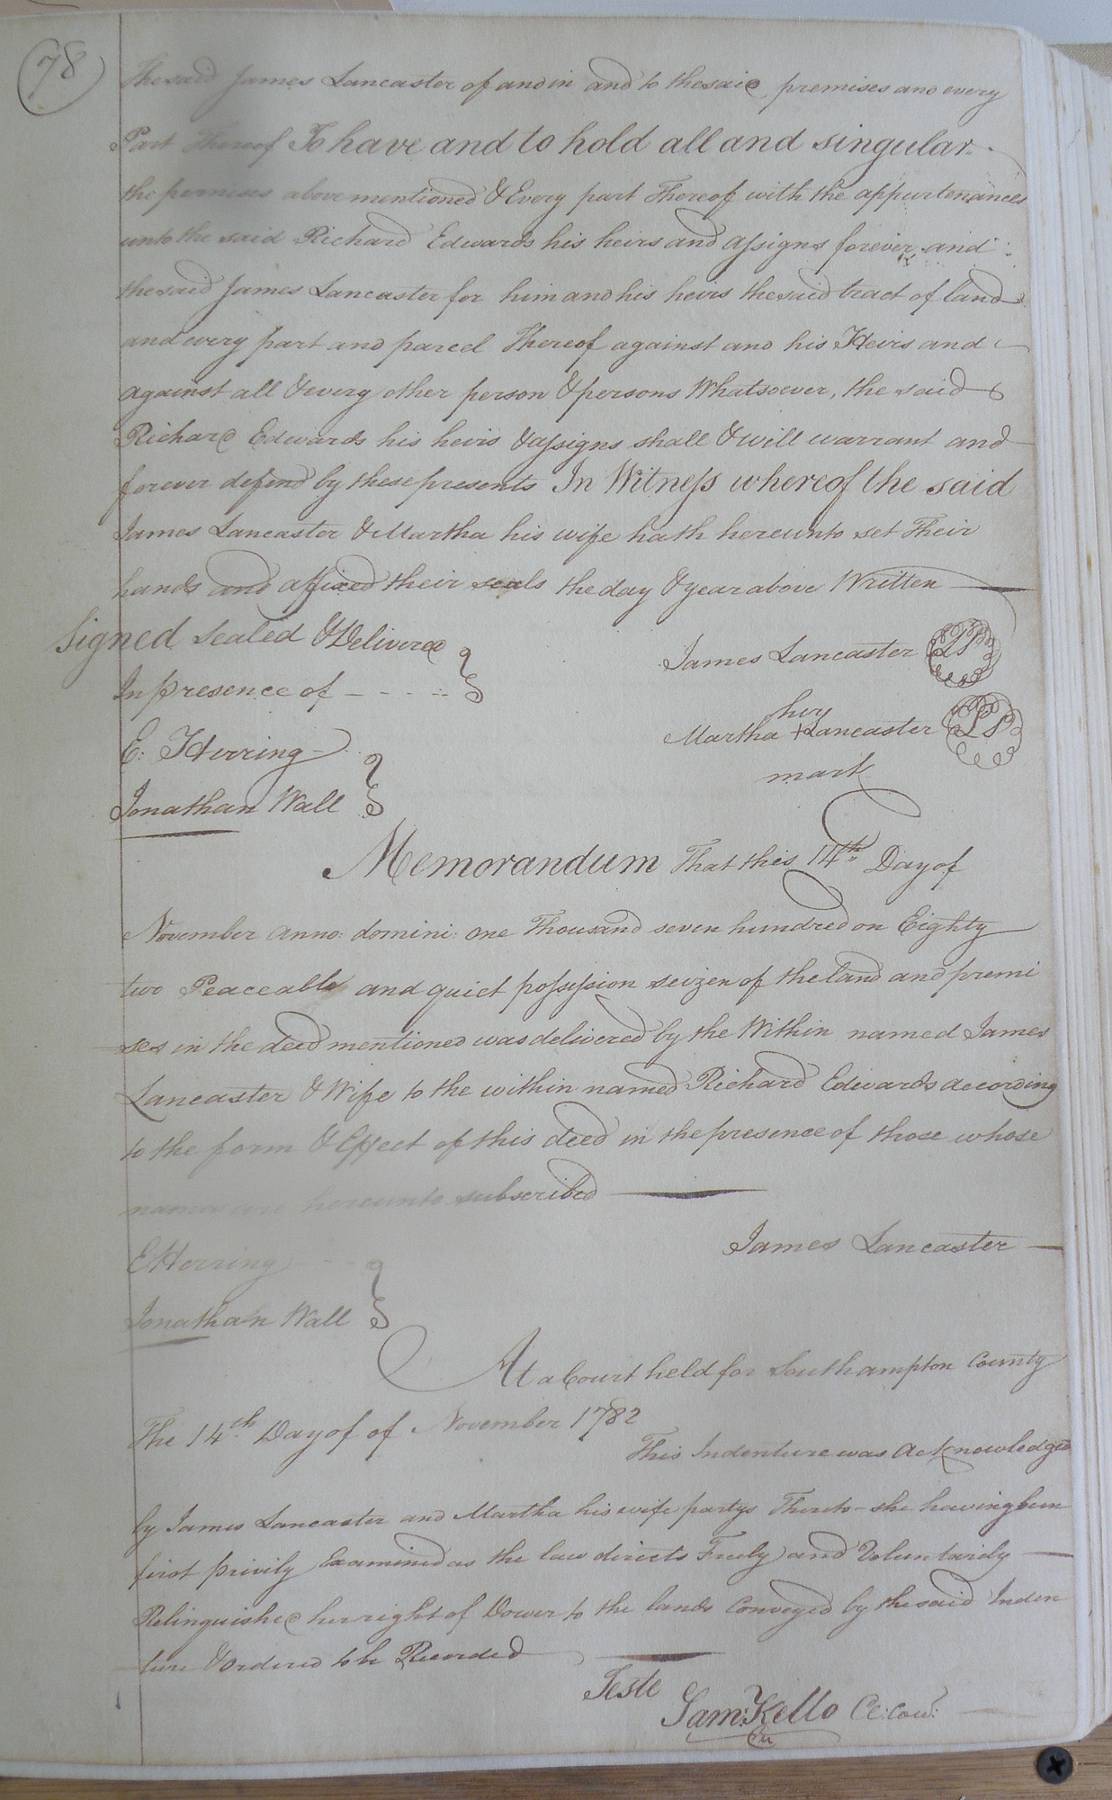 78
The said James Lancaster of and in and to the said premises and every
Part Thereof To have and to hold all and singular
the premises above mentioned & Every part Thereof with the appurtenances
unto the said Richard Edwards his heirs and assigns forever and
the said James Lancaster for him and his heirs the said tract of land
and every part and parcel Thereof against and his Heirs and
against all & every other person & persons Whatsoever, the said
Richard Edwards his heirs & assigns shall & will warrant and
forever defend by these presents In Witness whereof the said
James Lancaster & Martha his wife hath hereunto set Their
hands and affixed their seals the day & year above Written
Signed Sealed & Delivered
In presence of - - - - -
James Lancaster LS
her
Martha + Lancaster LS
mark
E: Herring
Jonathan Wall
Memorandum That this 14th Day of
November anno: domini: one Thousand seven hundred on Eighty
two Peaceable and quiet possession seizen of the land and premi
ses in the deed mentioned was delivered by the Within named James
Lancaster & Wife to the within named Richard Edwards according
to the form & Effect of this deed in the presence of those whose
names are hereunto subscribed
James Lancaster
E Herring
Jonathan Wall
At a Court held for Southampton County
The 14th Day of of November 1782
This Indenture was Acknowledged
by James Lancaster and Martha his wife partys Thereto - she having been
first privily Examined as the law directs Freely and Voluntarily
Relinquished her right of Dower to the lands Conveyed by the said Inden
ture & ordered to be Recorded
Teste
Sam: Kello Cl: Cou: